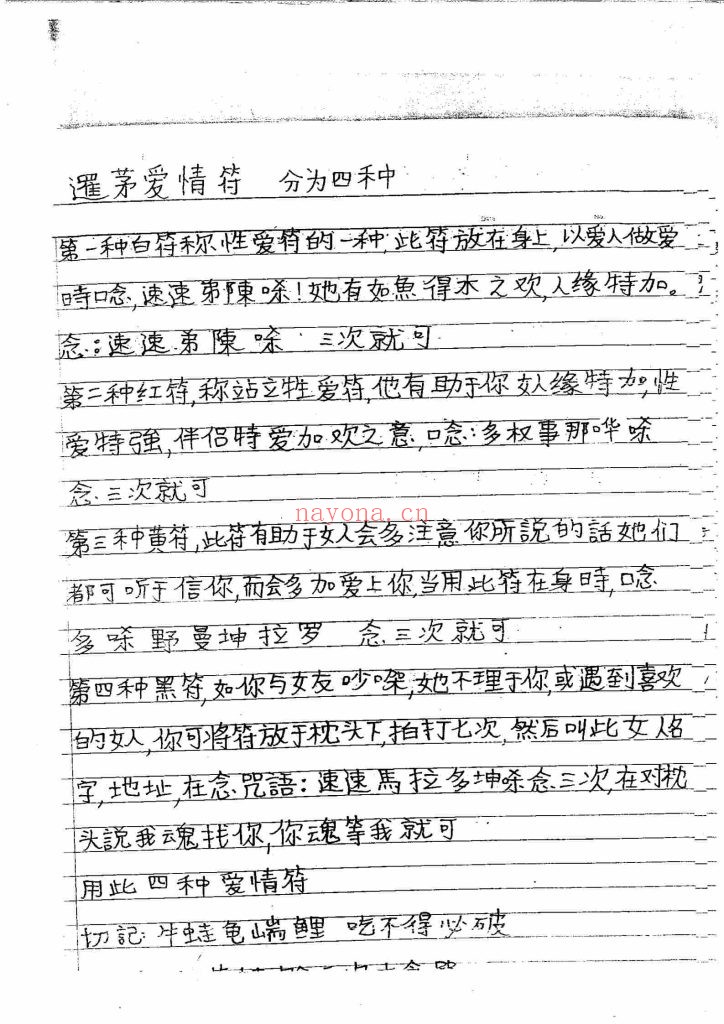 暹茅爱情符 分为四种
第一种白符称性爱符的一种,此符放在身上,以爱人做爱
時唸,速速弟陳唥!她有如魚得水之欢,人缘特加。
念:速速弟陳唥 三次就可
第二种红符,称站立性爱符,他有助于你女人缘特加,性
爱特強,伴侣特爱加欢之意,唸:多权事那哗唥
念三次就可
nayona.cn
第三种黄符,此符有助于女人会多注意你所説的話她们
都可听于信你,而会多加爱上你,当用此符在身時,唸
多唥野曼坤拉罗 念三次就可
第四种黑符,如你与女友吵架,她不理于你,或遇到喜欢
的女人,你可将符放于枕头下,拍打七次,然后叫此女人名
字,地址,在念咒語:速速馬拉多坤唥念三次,在对枕
头説我魂找你,你魂等我就可
用此四种爱情符
切記:牛蛙龟 鲤 吃不得必破